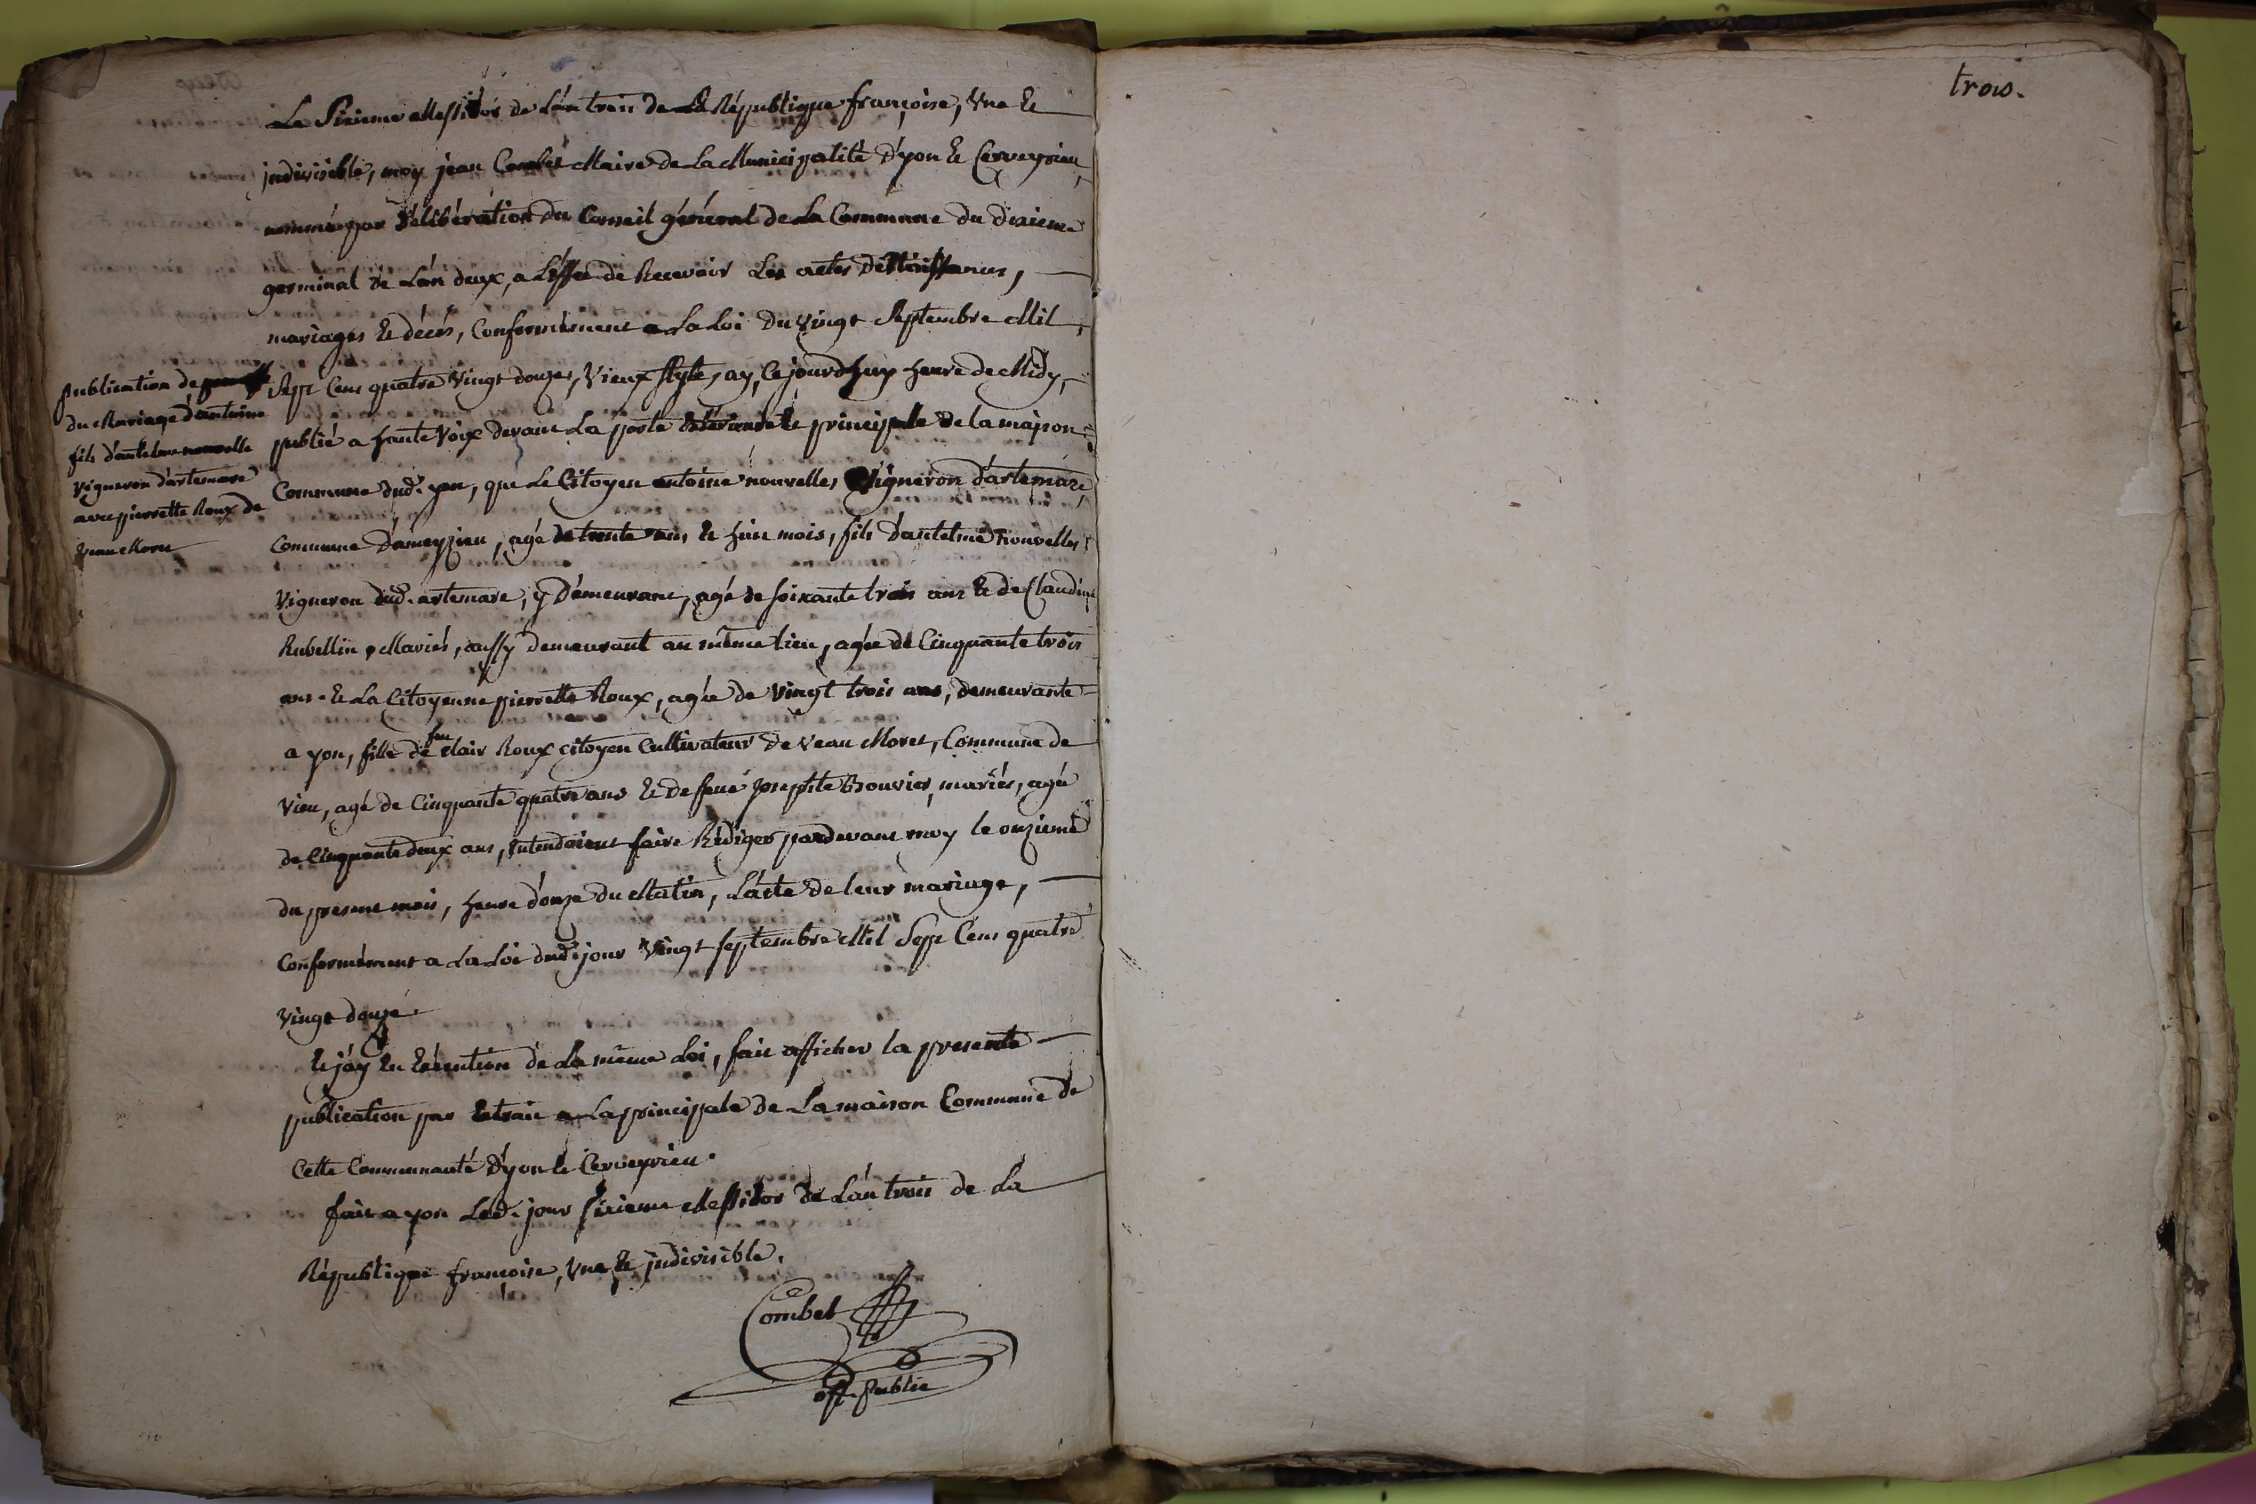 Le Sixieme Messidor de L'an trois de La République françoise, Une Et
indivisible, moy jean Combet Maire de La Municipalité d'yon Et Cerveyrieu,
nommé par délibération du Conseil général de La Commune du dixieme
germinal de L'an deux, a L'effet de Recevoir Les actes de Naissances,
mariages Et décés, Conformément a La Loi Du Vingt Septembre Mil
Sept Cent quatre Vingt douze, Vieux Style, ay, Cejourdhuy heure de Midy,
publié a haute Voix devant La porte Extérieure Et principale de la maison
Commune dud. yon, que Le Citoyen antoine nouvelles Vigneron d'artemare
Commune d'ameyzieu, agé de trente ans Et huit mois, fils d'antelme nouvelles
Vigneron dud. artemare, y Démeurant, agé de soixante trois ans Et de Claudine
Rubellin, Mariés, aussy demeurant au même lieu, agée de Cinquante trois
ans. Et La Citoyenne pierrette Roux, agée de Vingt trois ans, demeurante
a yon, fille de feu clair Roux citoyen Cultivateur de Veau Moret, Commune de
Vieu, agé de Cinquante quatre ans Et de feue josephte Bouvier, mariés, agée
de Cinquante deux ans, Entendoient faire Rédiger pardevant moy le onzieme
du present mois, heure d'onze du Matin, L'acte de leur mariage,
Conformément a La Loi dud. jour Vingt septembre Mil Sept Cent quatre
Vingt douze.
Et j'ay En Exécution de La même Loi, fait afficher la presente
publication par Extrait a La principale de La maison Commune de
Cette Communauté d'yon Et Cerveyrieu.
fait a yon Led. jour sixieme Messidor de L'an trois de La
République françoise, Une Et indivisible.
Combet
off. public
publication de
du Mariage d'antoine
fils d'antelme nouvelle
Vigneron d'artemare
avec pierrette Roux de
Veau Moret
trois.